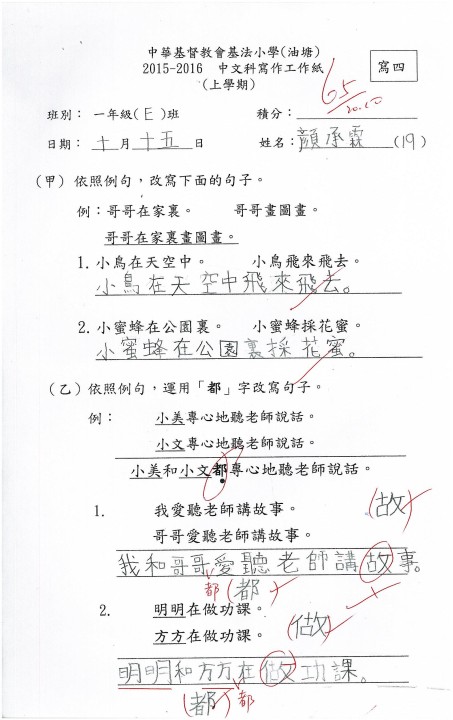 中華基督教會基法小學(油塘)
2015-2016 中文科寫作工作紙
(上學期)
寫四
65
20.10
班別： 一年級(E)班 積分：
日期： 十 月 十五 日 姓名： 顏承霖 (19)
(甲) 依照例句，改寫下面的句子。
例：哥哥在家裏。 哥哥畫圖畫。
哥哥在家裏畫圖畫。
1. 小鳥在天空中。 小鳥飛來飛去。
小鳥在天空中飛來飛去。
2. 小蜜蜂在公園裏。 小蜜蜂採花蜜。
小蜜蜂在公園裏採花蜜。
(乙) 依照例句，運用「都」字改寫句子。
例： 小美專心地聽老師說話。
小文專心地聽老師說話。
小美和小文都專心地聽老師說話。
1. 我愛聽老師講故事。 (故)
哥哥愛聽老師講故事。
我和哥哥愛聽老師講故事。
都 (都)
2. 明明在做功課。
方方在做功課。 (做)
明明和方方在做功課。
(都) 都